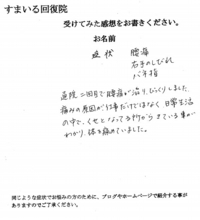 すまいる回復院
受けてみた感想をお書きください。
お名前
症状 腰痛
右手のしびれ
バネ指
施術二回目で腰痛が治り、びっくりしました
痛みの原因が仕事だけではなく日常生活
の中で、くせとなってる所からきている事が
わかり、体を痛めていました。
同じような症状でお悩みの方のために、ブログやホームページで紹介する事が
ありますのでご了承ください。